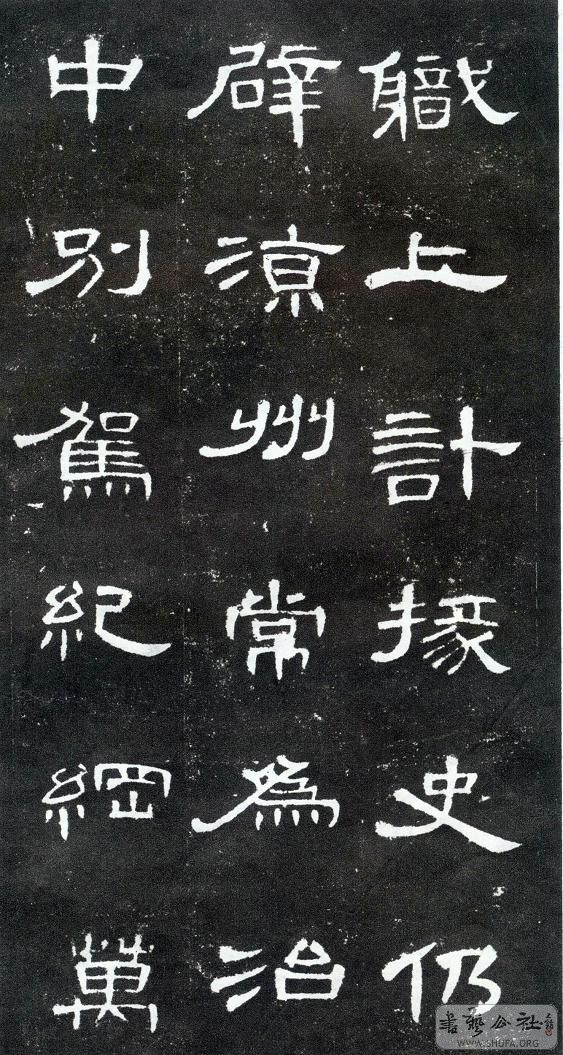 軄上計掾史仍
辟涼州常爲治
中別駕紀綱萬
書藝公社
WWW.SHUFA.ORG